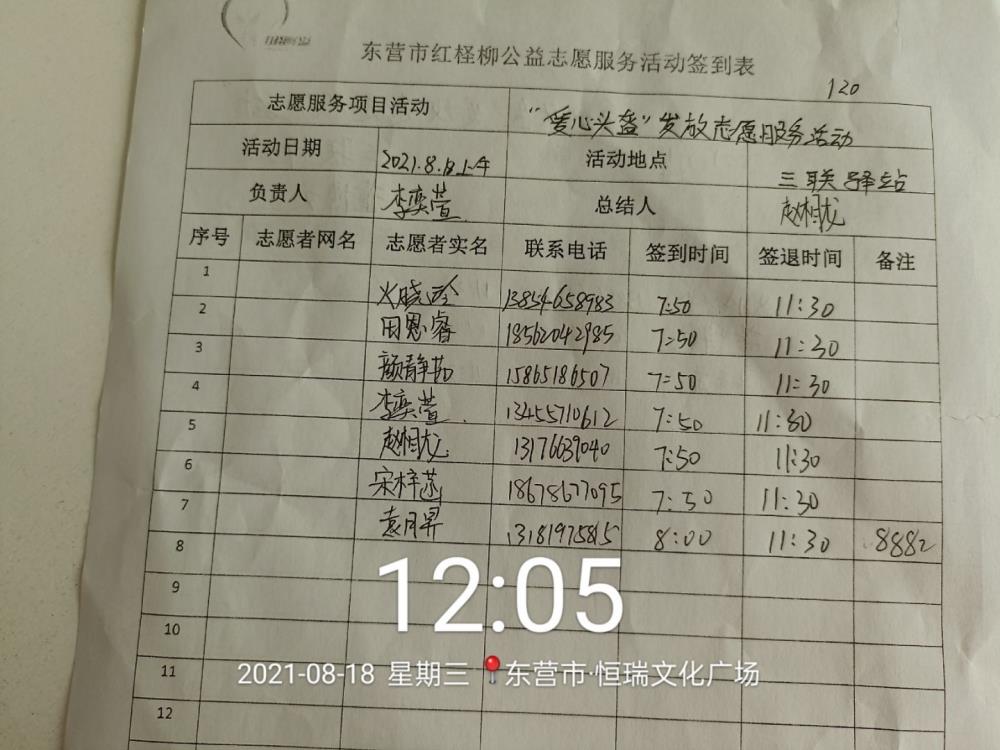 东营市红柽柳公益志愿服务活动签到表
120
志愿服务项目活动 "爱心头盔"发放志愿服务活动
活动日期 2021.8.18上午 活动地点 三联驿站
负责人 李奕萱 总结人 赵相龙
序号 志愿者网名 志愿者实名 联系电话 签到时间 签退时间 备注
1 13854658983 7:50 11:30
2 田恩睿 18562042985 7:50 11:30
3 颜静茹 15865186507 7:50 11:30
4 李奕萱 13455710612 7:50 11:30
5 赵相龙 13176639040 7:50 11:30
6 宋梓菡 18678677095 7:50 11:30
7 袁月昇 13181975815 8:00 11:30 8882
8
9
10
11
12
12:05
2021-08-18 星期三 东营市·恒瑞文化广场